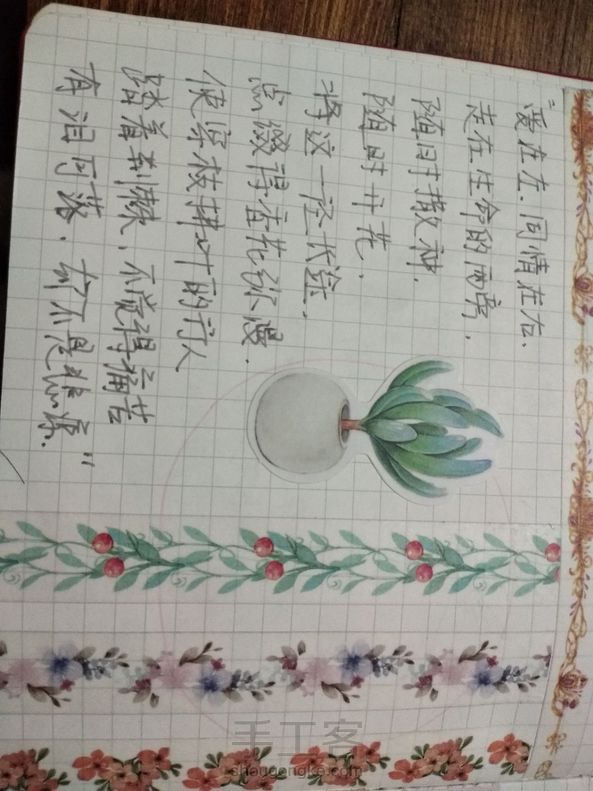 “爱在左.同情在右.
走在生命的两旁,
随时撒种.
随时开花,
将这一径长途,
点缀得香花弥漫.
使穿枝拂叶的行人
踏着荆棘、不觉得痛苦
有泪可落.却不是悲凉.”
手工客
shougongke.com